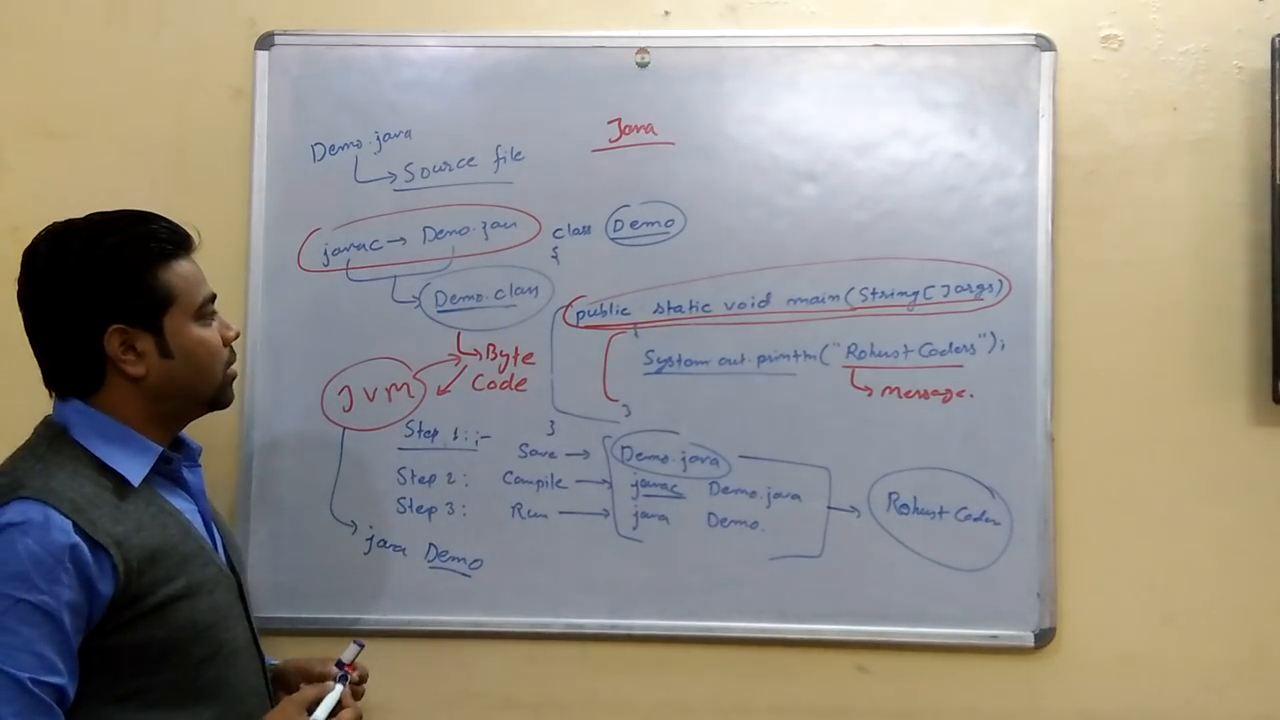 Java
Demo.java
Source file
javac → Demo.java
Demo.class
Byte
Code
JVM
java Demo
class Demo
{
public static void main(String[]args)
{
System.out.println("Robust Coders");
message.
}
}
Step 1:-
Save → Demo.java
Step 2: Compile → javac Demo.java
Step 3: Run → java Demo.
Robust Coder